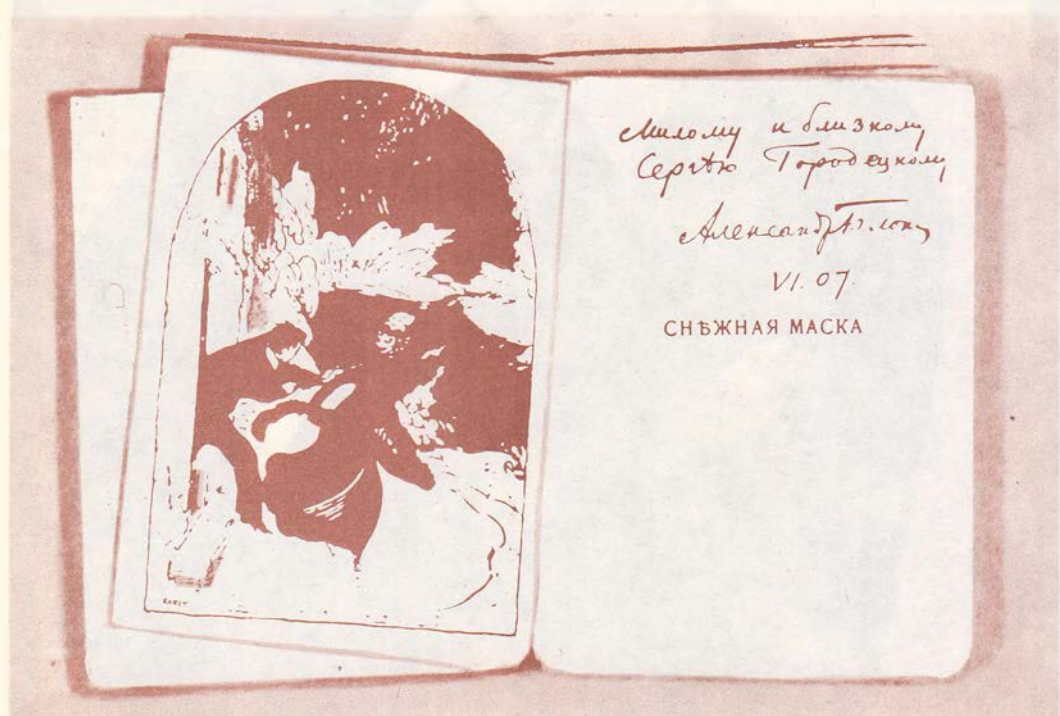 Милому и близкому
Сергѣю Городецкому
Александр Блокъ
VI. 07.
СНѢЖНАЯ МАСКА
БАКСТ